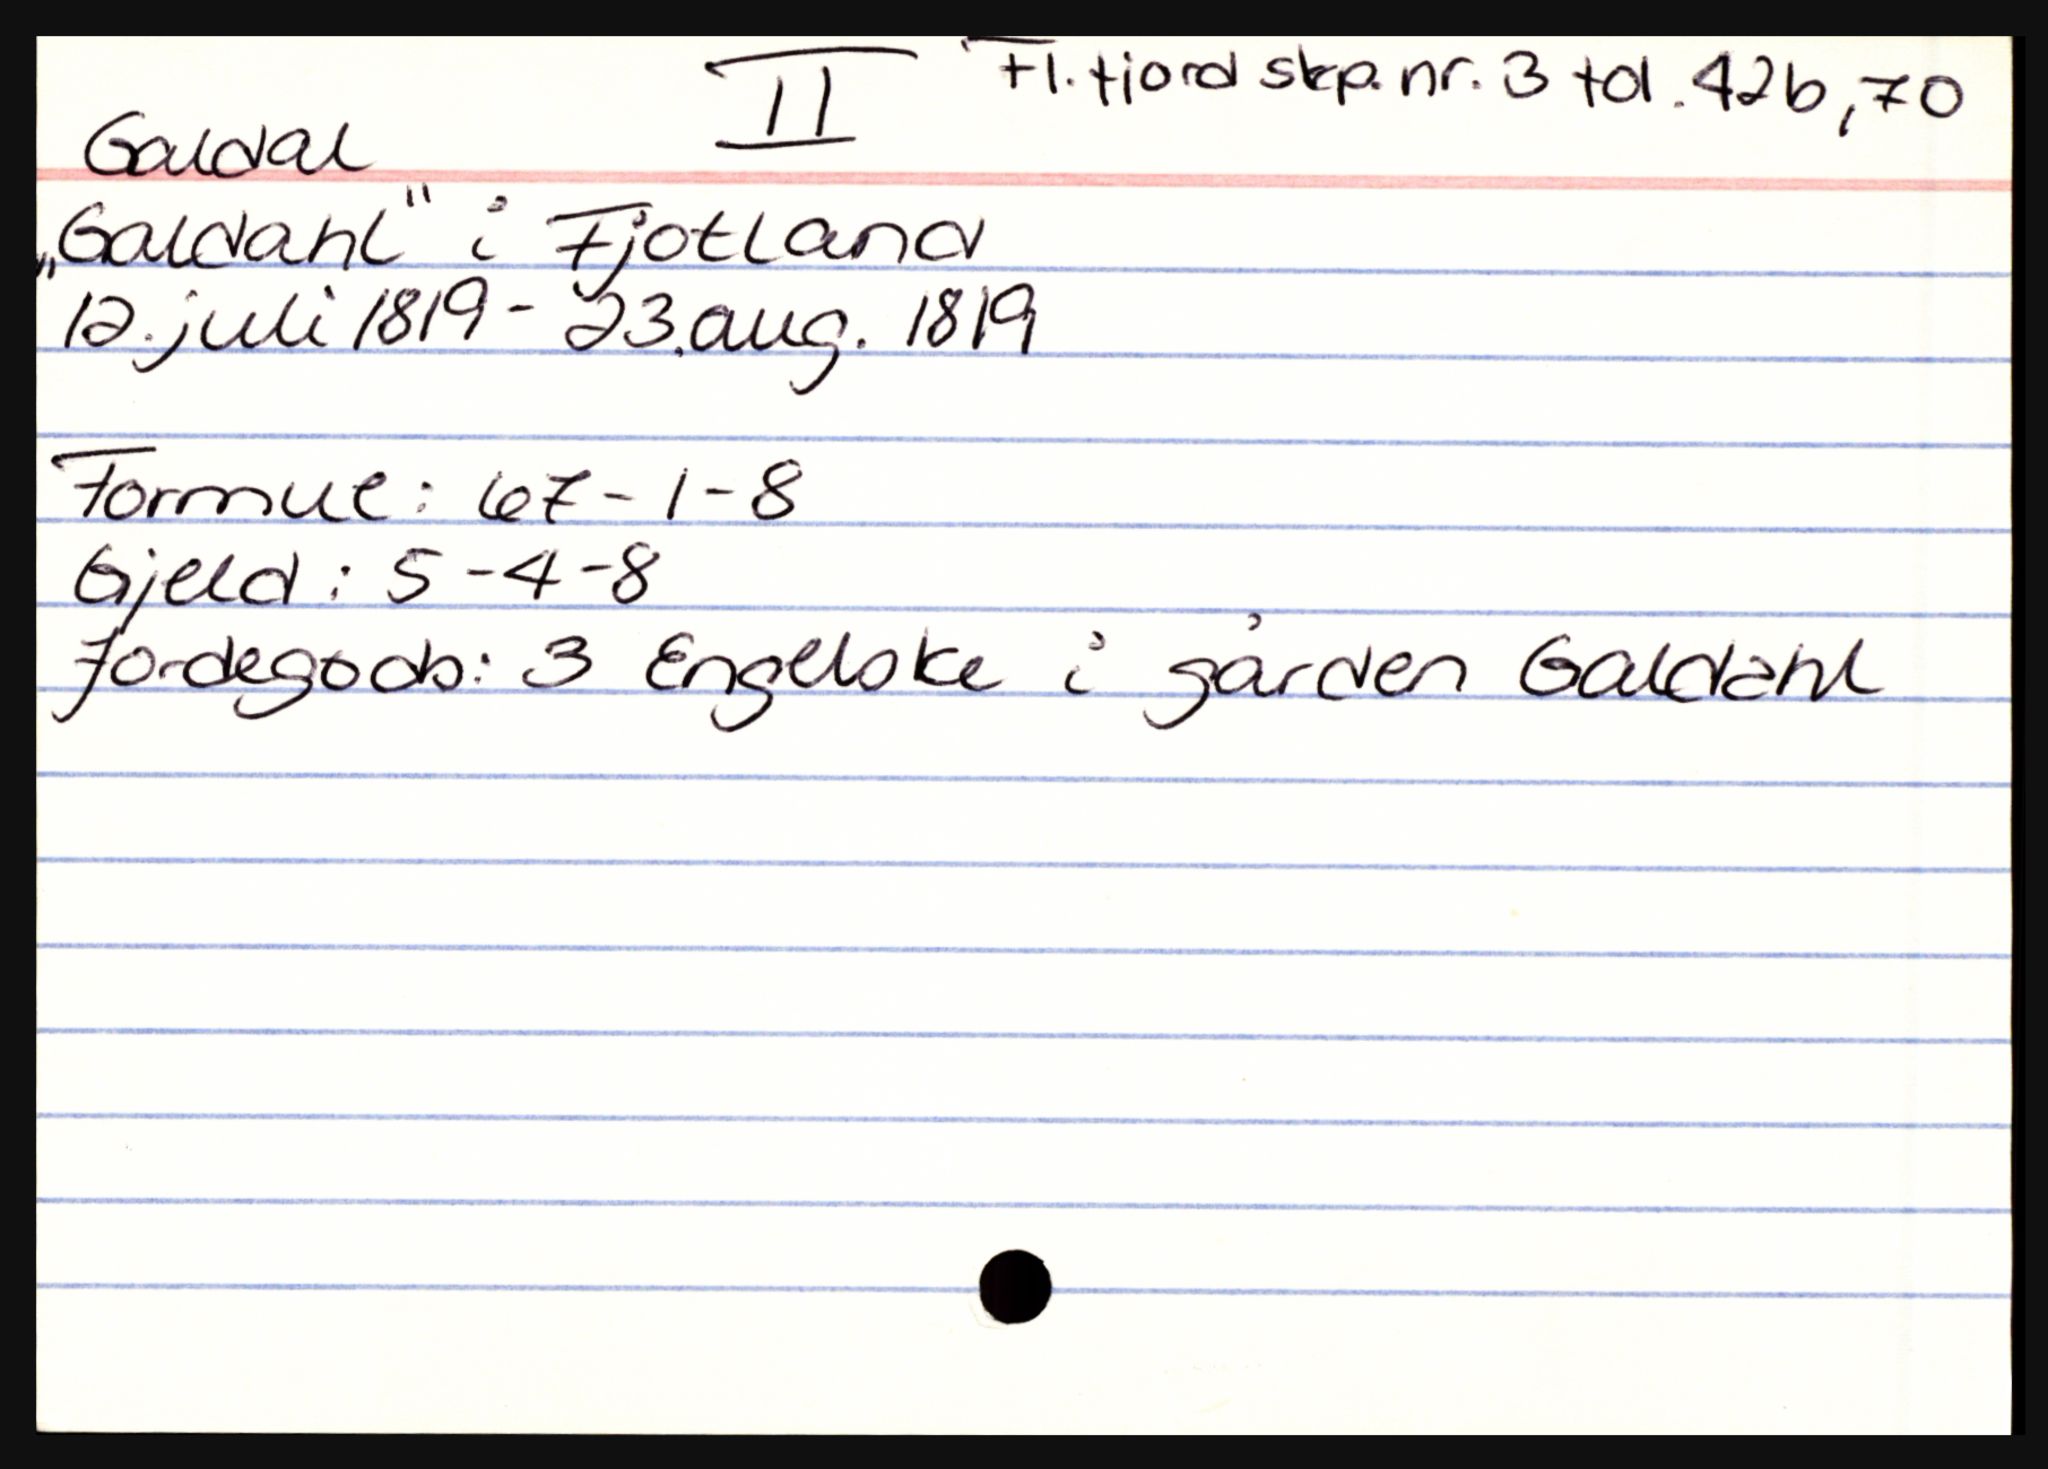 II Fl.fjord skp.nr. 3 fol. 42b, 70
Galdal
„Galdahl" i Fjotland
12. juli 1819 - 23. aug. 1819
Formue: 67-1-8
Gjeld: 5-4-8
Jordegods: 3 Engelske i gården Galdahl